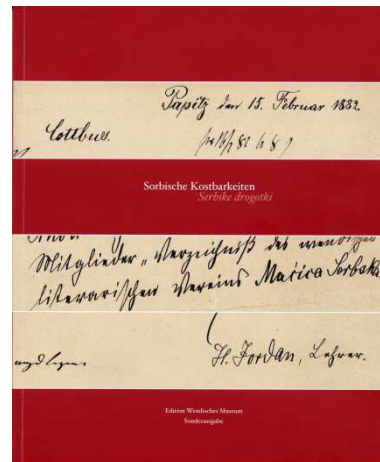 Papitz den 15. Februar 1882.
Cottbus.
Sorbische Kostbarkeiten
Serbske drogotki
Mitglieder-Verzeichniß des wendischen
literarischen Vereins Maćica Serbska
H. Jordan, Lehrer.
Edition Wendisches Museum
Sonderausgabe